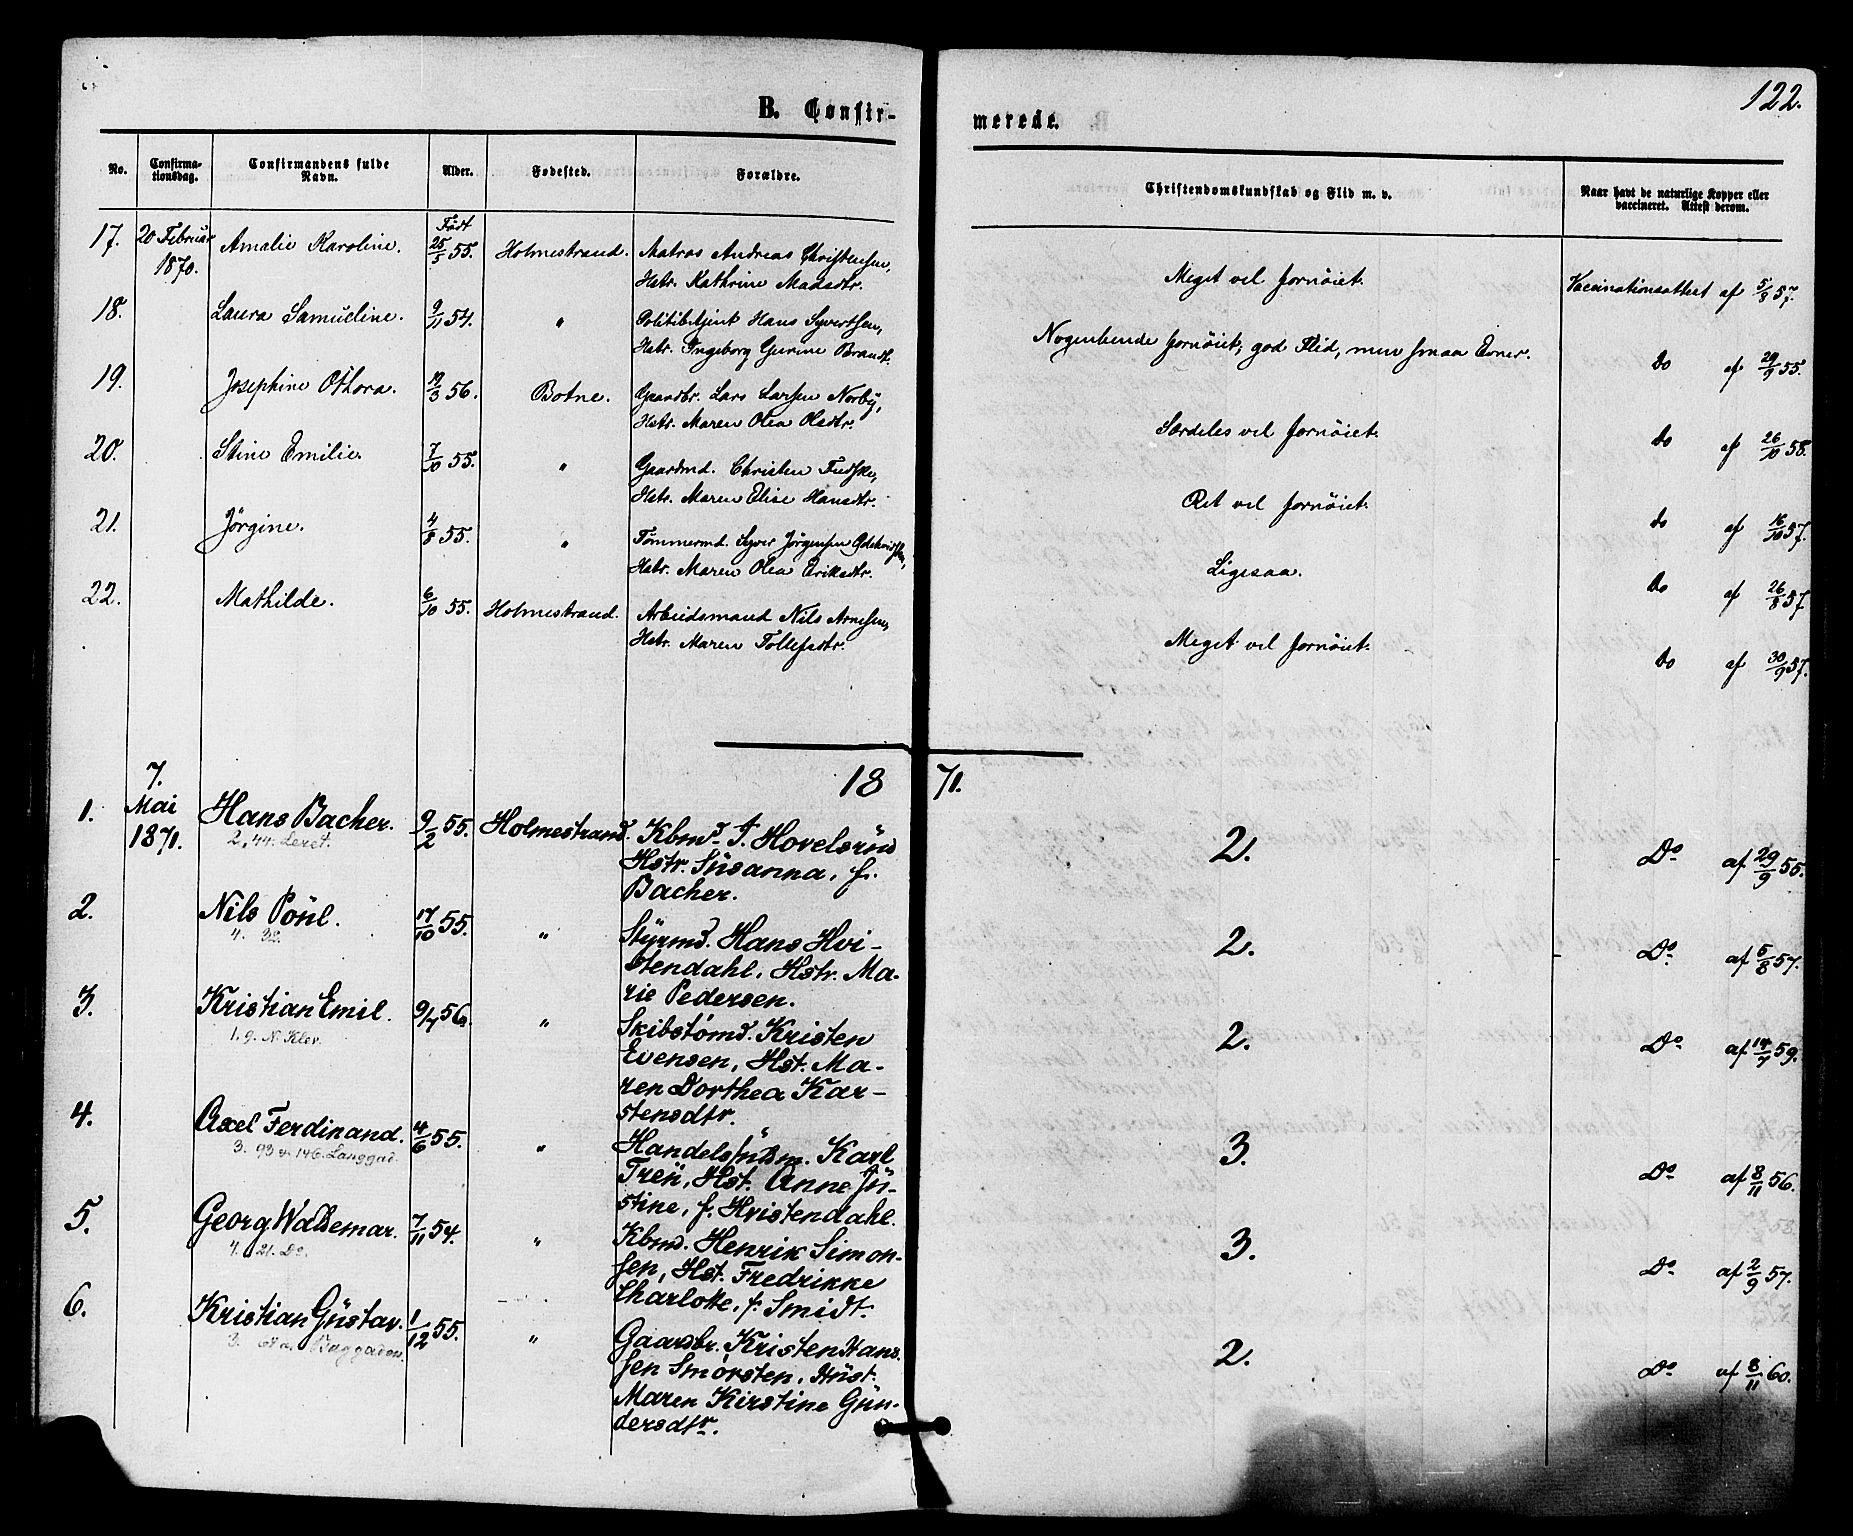 122.
B. Confirmerede.
No. Confirmationsdag. Confirmandens fulde Navn. Alder. Fødested. Forældre. Christendomskundskab og Flid m. v. Naar havt de naturlige Kopper eller vaccineret. Attest derom.
17. 20 Februar 1870. Amalie Karoline. Født 25/5 55. Holmestrand. Matros Andreas Christensen,
Hstr. Kathrine Madsdtr. Meget vel fornøiet. Vaccinationsattest af 5/8 57.
18. Laura Samueline. 9/11 54. " Politibetjent Hans Syvertsen,
Hstr. Ingeborg Gurine Brandt. Nogenlunde fornøiet; god Flid, men smaa Evner. do af 29/9 55.
19. Josephine Othora. 19/3 56. Botne. Gaardbr. Lars Larsen Norby,
Hstr. Maren Olea Olsdtr. Særdeles vel fornøiet. do af 26/10 58.
20. Stine Emilie. 7/10 55. " Gaardmd. Christen
Hstr. Maren Elise Hansdtr. Ret vel fornøiet. do af 16/10 57.
21. Jörgine. 4/8 55. " Tømmermd. Syver Jörgensen
Hstr. Maren Olea Eriksdtr. Ligesaa. do af 26/8 57.
22. Mathilde. 6/10 55. Holmestrand. Arbeidsmand Nils Arnesen,
Hstr. Maren Tollefsdtr. Meget vel fornøiet. do af 30/9 57.
1871.
1. 7. Mai 1871. Hans Bacher. 9/2 55. Holmestrand. Kbmd. J. Hovelsrüd
2. 44. Leret. Hstr. Süsanna, f.
Bacher. 2. Do. af 29/9 55.
2. Nils Poül. 17/10 55. " Styrmd. Hans Hvi-
4. 32. stendahl, Hstr. Ma-
rie Pedersen. 2. Do. af 5/8 57.
3. Kristian Emil. 9/7 56. " Skibstømd. Kristen
1. 9. N. Klev. Evensen, Hst. Ma-
ren Dorthea Kar-
stensdtr. 2. Do. af 14/7 59.
4. Axel Ferdinand. 4/6 55. " Karl
3. 93 & 146. Langgad. Treü, Hst. Anne Jü-
stine, f. Hvistendahl. 3. Do. af 8/11 56.
5. Georg Waldemar. 7/11 54. " Kbmd. Henrik Simon-
4. 21. Do. sen, Hst. Fredrikke
Charlotte, f. Smidt. 3. Do. af 2/9 57.
6. Kristian Güstav. 1/12 55. " Gaardbr. Kristen Han-
3. sen Smørsten, Hüst.
Maren Kirstine Gün-
dersdtr. 2. Do. af 8/11 60.